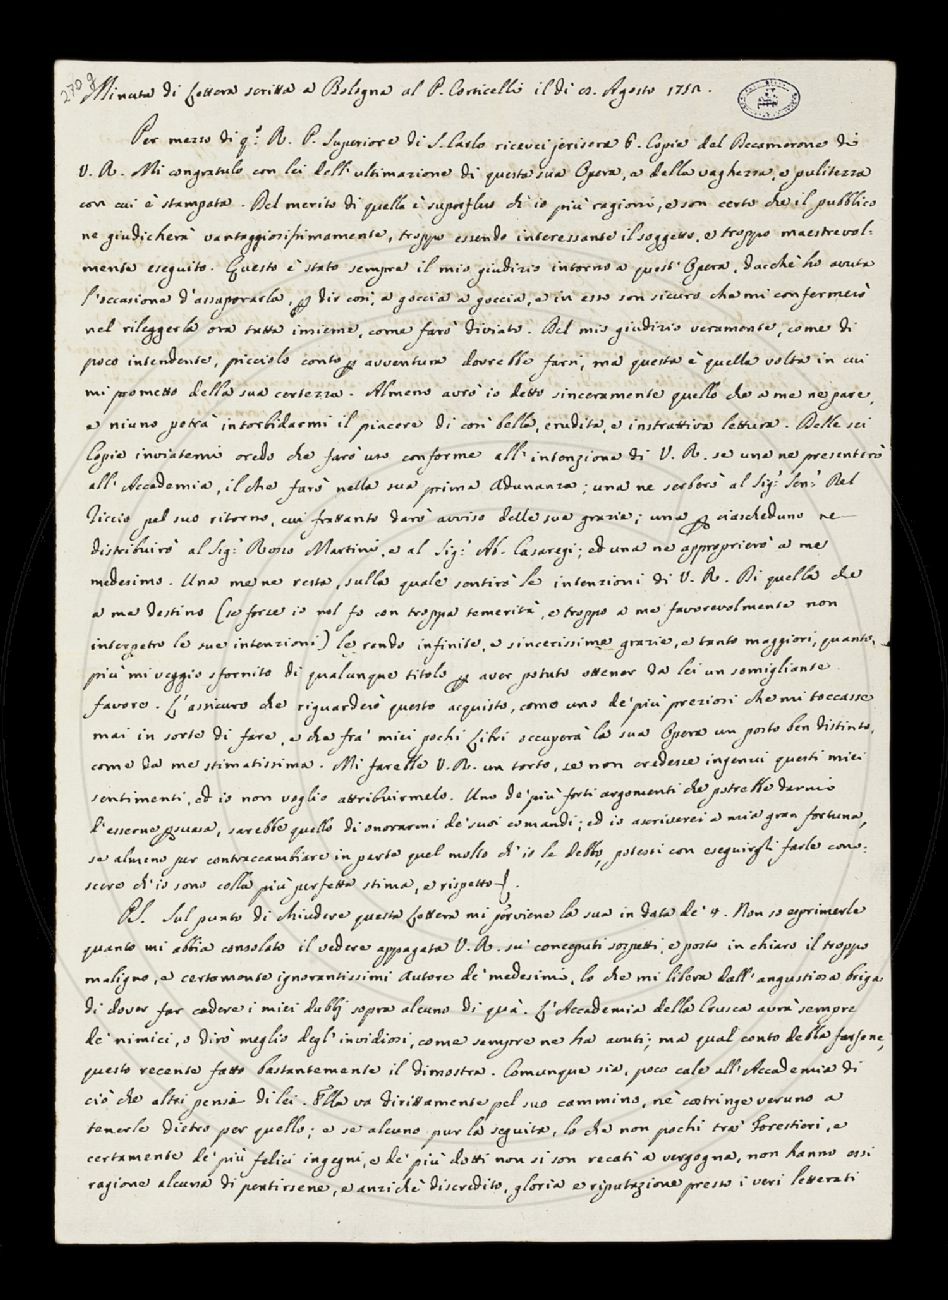 270 g
Minuta di Lettera scritta a Bologna al P. Corticelli il dì Agosto 175
Per mezzo di q.º R. P. Superiore di S. Carlo ricevei jerisera 6. Copie del Decamerone di
V. R. Mi congratulo con lei dell'ultimazione di questa sua Opera, e della vaghezza, e pulitezza
con cui è stampata. Del merito di quella è superfluo ch'io più ragioni, e son certo che il pubblico
ne giudicherà vantaggiosissimamente, troppo essendo interessante il soggetto, e troppo maestrevol=
mente eseguito. Questo è stato sempre il mio giudizio intorno a quest'Opera, dacchè ho avuta
l'occasione d'assaporarla, p dir così, a goccia a goccia, e in esso son sicuro che mi confermerò
nel rileggerla ora tutta insieme, come farò diviato. Del mio giudizio veramente, come di
poco intendente, picciolo conto p avventura dovrebbe farsi, ma questa è quella volta in cui
mi prometto della sua certezza. Almeno avrò io detto sinceramente quello che a me ne pare,
e niuno potrà intorbidarmi il piacere di così bella, erudita, e instruttiva lettura. Delle sei
Copie inviatemi credo che farò uso conforme all'intenzione di V. R. se una ne presenterò
all'Accademia, il che farò nella sua prima Adunanza; una ne serberò al Sig.r Sen.r Del
Riccio pel suo ritorno, cui frattanto darò avviso delle sue grazie; una p ciascheduno ne
distribuirò al Sig.r Rosso Martini, e al Sig.r Ab. Casaregi; ed una ne approprierò a me
medesimo. Una me ne resta, sulla quale sentirò le intenzioni di V. R. Di quella che
a me destino (se forse io nol fo con troppa temerità, e troppo a me favorevolmente non
interpetro le sue intenzioni) le rendo infinite, e sincerissime grazie, e tanto maggiori, quanto
più mi veggio sfornito di qualunque titolo p aver potuto ottener da lei un somigliante
favore. L'assicuro che riguarderò questo acquisto, come uno de' più preziosi che mi toccasse
mai in sorte di fare, e che fra' miei pochi Libri occuperà la sua Opera un posto ben distinto,
come da me stimatissima. Mi farebbe V. R. un torto, se non credesse ingenui questi miei
sentimenti, ed io non voglio attribuirmelo. Uno de' più forti argomenti che potrebbe darmi
d'esserne psuasa, sarebbe quello di onorarmi de' suoi comandi; ed io ascriverei a mia gran fortuna,
se almeno pur contraccambiare in parte quel molto ch'io le debbo, potessi con eseguirgli farle cono=
scere ch'io sono colla più perfetta stima, e rispetto
P.S. Sul punto di chiudere questa Lettera mi perviene la sua in data de' 9. Non so esprimerle
quanto mi abbia consolato il vedere appagata V. R. su' conceputi sospetti, e posto in chiaro il troppo
maligno, e certamente ignorantissimi Autore de' medesimi, lo che mi libera dall'angustiosa briga
di dover far cadere i miei dubbj sopra alcuno di quà. L'Accademia della Crusca avrà sempre
de' nimici, o dirò meglio degl'invidiosi, come sempre ne ha avuti; ma qual conto debba farsene,
questo recente fatto bastantemente il dimostra. Comunque sia, poco cale all'Accademia di
ciò che altri pensa di lei. Ella va dirittamente pel suo cammino, nè costringe veruno a
tenerle dietro per quello; e se alcuno pur la seguita, lo che non pochi tra' Forestieri, e
certamente de' più felici ingegni, e de' più dotti non si son recati a vergogna, non hanno essi
ragione alcuna di pentirsene, e anzichè discredito, gloria e riputazione presso i veri letterati